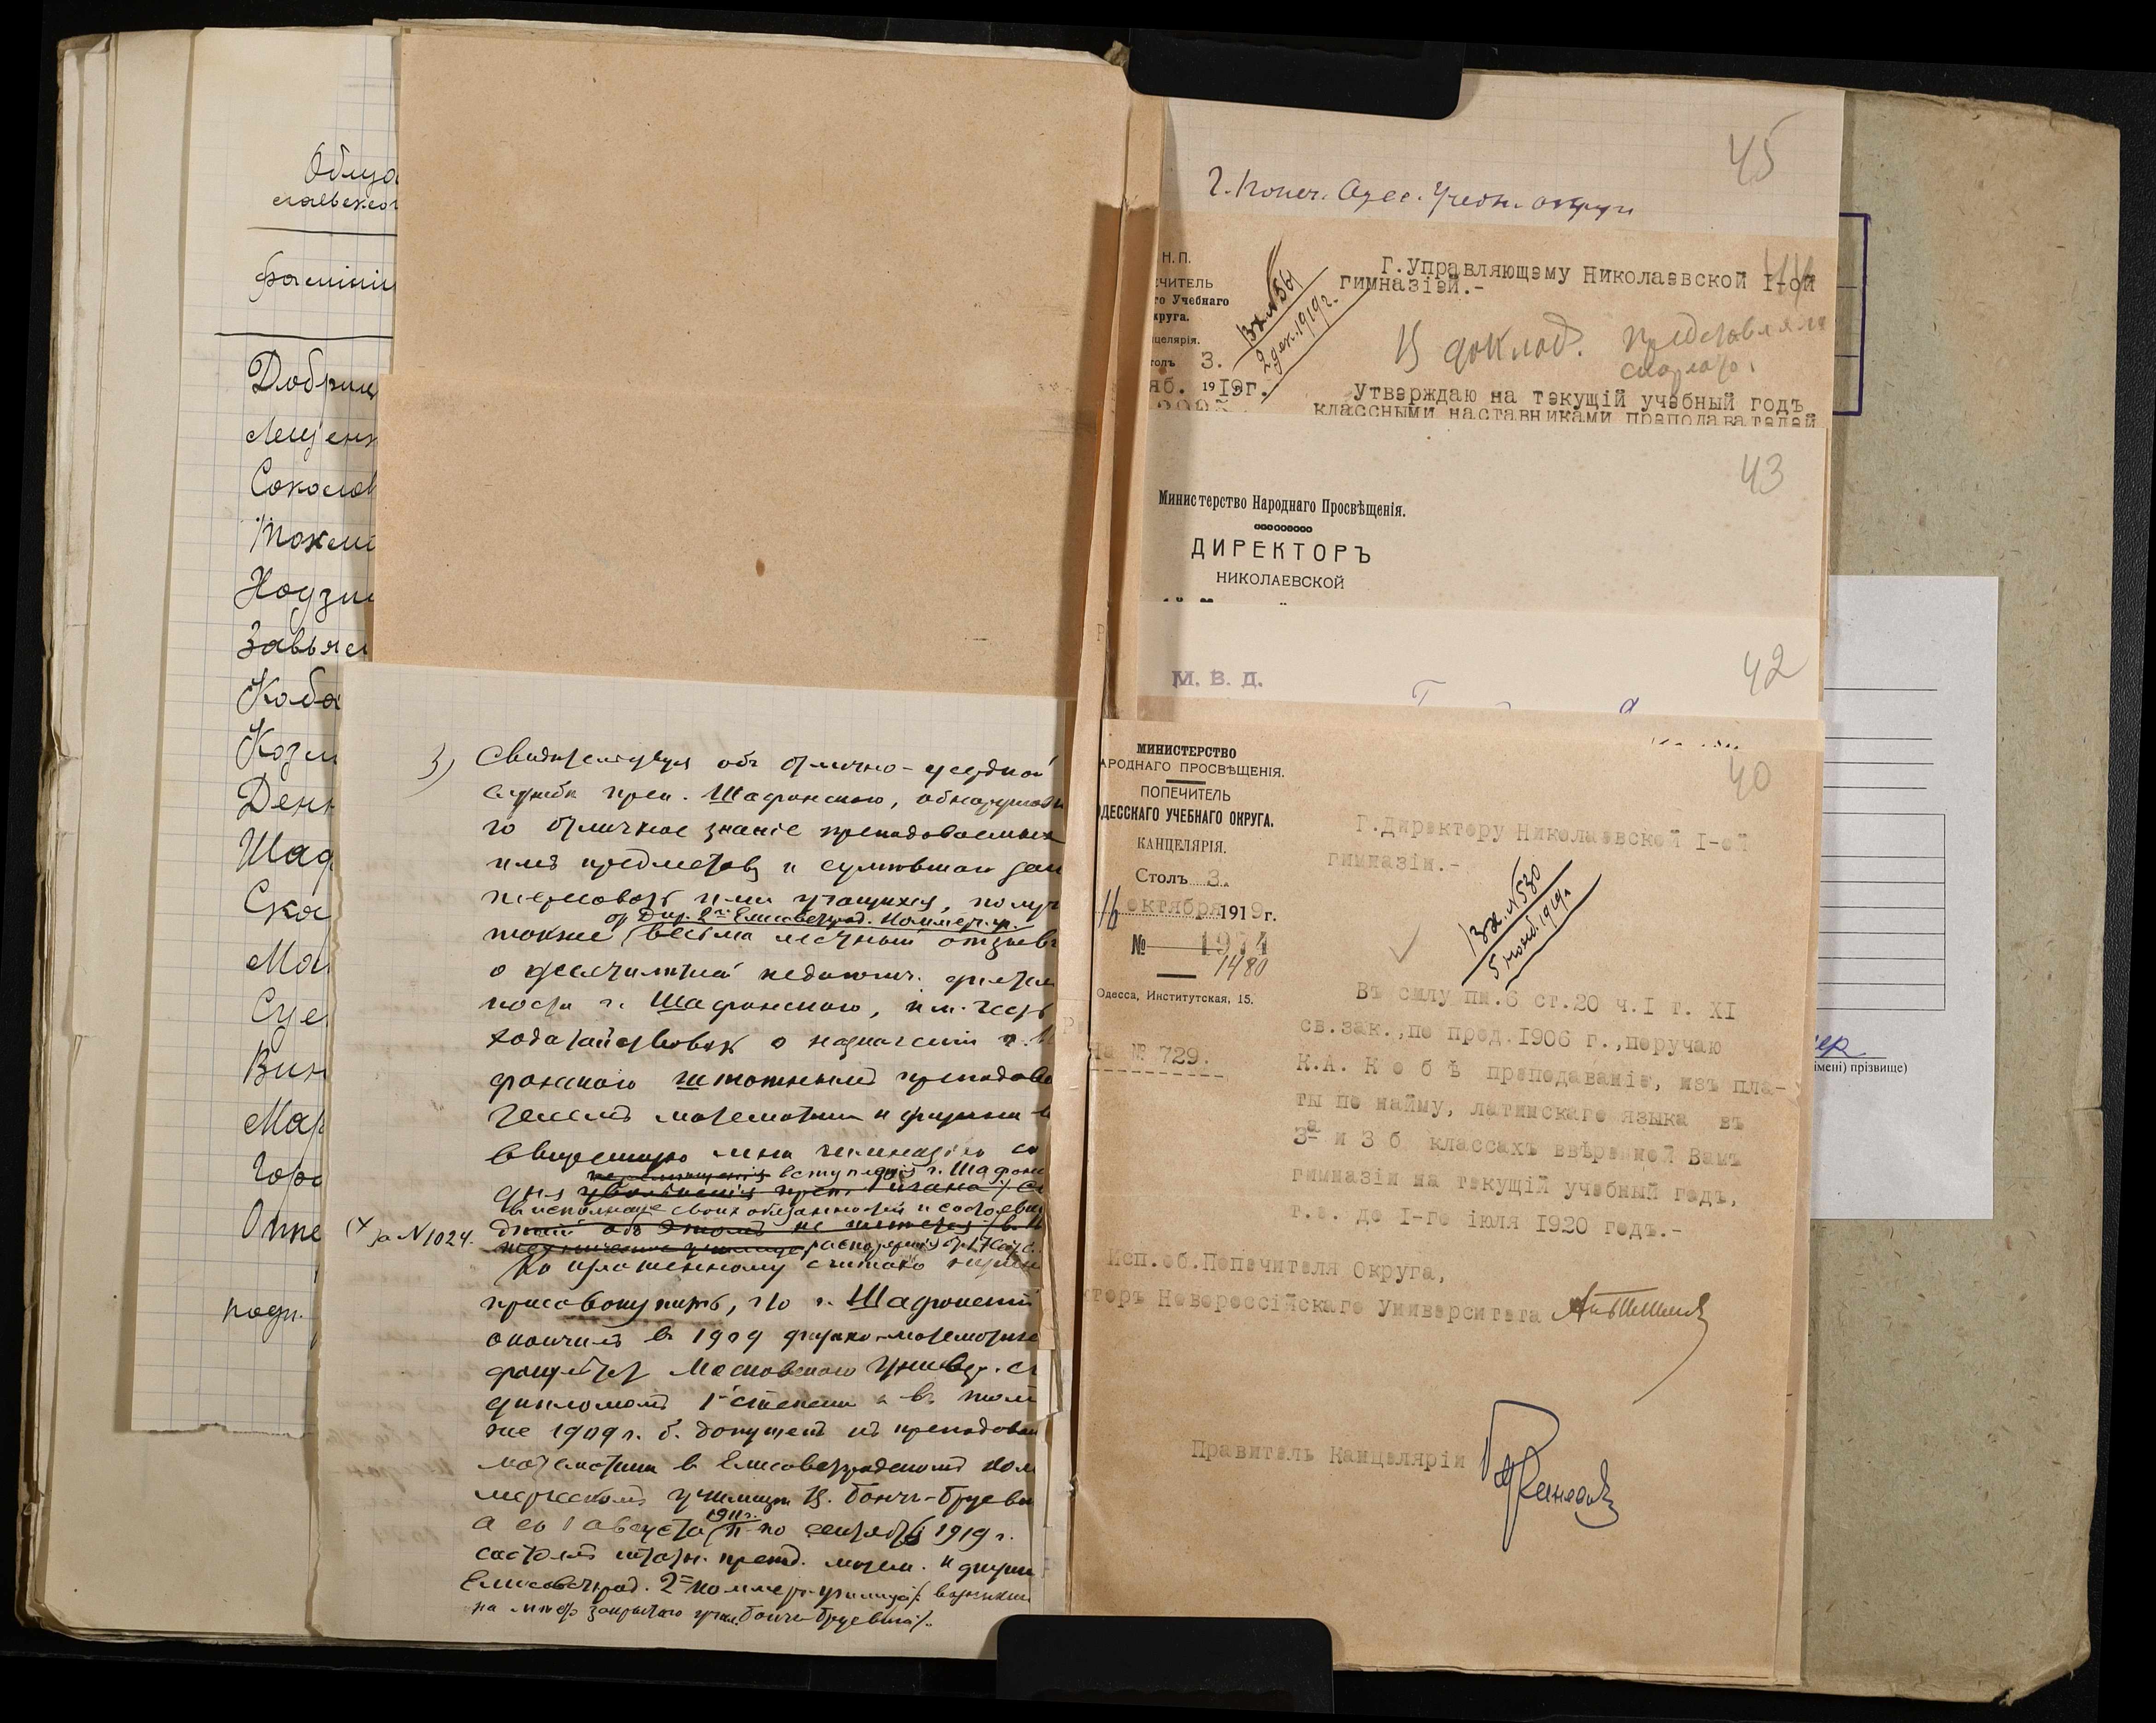 Облуд
славског
фамилии
Добрин
Лещенк
Соколов
Токма
Нодзи
Завьял
Коба
Козл
День
Шаф
Ска
Ма
Суе
Вин
Мар
Горо
Оппе
подп.
3) Свидетельствуя об отлично-усердной
службе преп. Шафонского, обнаружив
го отличное знание преподаваемых
имъ предметовъ и сумевшаго
ими учащихся, получ
от Дир. 2го Елисаветград. Коммерч. уч.
также весьма лестный отзывъ
о десятилетней педагогич. деятель
ности г. Шафонского, им. честь
ходатайствовать о назначении г. Ша
фонского штатнымъ преподава
телемъ математики и физики
вверенную мне гимназию со
дня вступления г. Шафон
въ исполнение своихъ обязанностей
(+ за N 1024.
Къ изложенному считаю нужн
присовокупить, что г. Шафонский
окончилъ в 1909 физико-математич
факультет Московского Универ. с
дипломомъ 1й степени и в том
же 1909 г. б. допущенъ къ преподаван
математики в Елисаветградскомъ ком
мерческомъ училище В. Бонч-Бруеви
а со 1 августа 1911 г. по сентябрь 1919 г.
состоялъ штатн. препод. матем. и физик
Елисаветград. 2го коммерч. училища
на место закрытого учил. Бонч-Бруевича/.
45
Г. Попеч. Одес. Учебн. округа
Н.П.
ЕЧИТЕЛЬ
го Учебнаго
круга.
целярія.
толъ 3.
яб. 1919г.
Вх. №561
2 дек. 1919 г.
44
Г.Управляющему Николаевской I-ой
гимназіей.-
К доклад.
Утверждаю на текущій учебный годъ
классными наставниками преподавателей
43
Министерство Народнаго Просвѣщенія.
ДИРЕКТОРЪ
НИКОЛАЕВСКОЙ
42
М. В. Д.
40
МИНИСТЕРСТВО
АРОДНАГО ПРОСВѢЩЕНІЯ.
ПОПЕЧИТЕЛЬ
ОДЕССКАГО УЧЕБНАГО ОКРУГА.
КАНЦЕЛЯРІЯ.
Столъ 3.
16 октября 1919 г.
№ 1974
1480
Одесса, Институтская, 15.
На № 729.
Г.Директору Николаевской I-ой
гимназіи.-
Вх. №530
5 нояб. 1919 г.
Въ силу пм.6 ст.20 ч.I т. XI
св.зак.,по прод.1906 г.,поручаю
К.А. К о б ѣ преподаваніе, изъ пла-
ты по найму, латинскаго языка въ
3а и 3 б классахъ ввѣренной Вамъ
гимназіи на текущій учебный годъ,
т.е. до I-го іюля 1920 годъ.-
Исп.об.Попечителя Округа,
кторъ Новороссійскаго Университета
Правитель Канцеляріи
імені) прізвище)